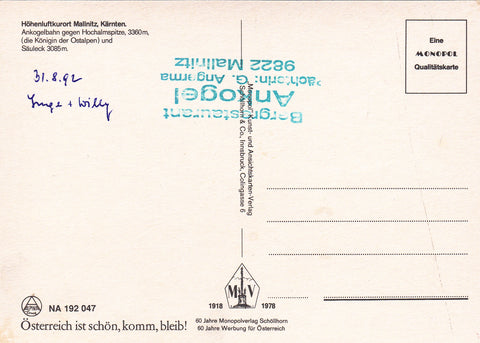 Höhenluftkurort Mallnitz, Kärnten.
Ankogelbahn gegen Hochalmspitze, 3360m,
(die Königin der Ostalpen) und
Säuleck 3085m.
31.8.92
Inge + Willy
Bergrestaurant
Ankogel
Pächterin: G. Angerma
9822 Mallnitz
Monopol-, Kunst- und Ansichtskarten-Verlag
Schöllhorn & Co., Innsbruck, Colingasse 6
Eine
MONOPOL
Qualitätskarte
NA 192 047
Österreich ist schön, komm, bleib!
M V
1918 1978
60 Jahre Monopolverlag Schöllhorn
60 Jahre Werbung für Österreich